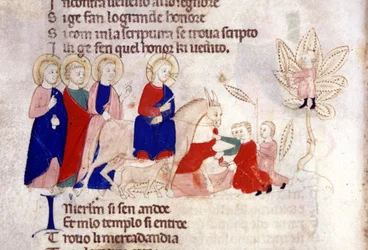 I ncontra veneno alo segnore
S i ge fan lo grande honore
S i com in la scriptura se trova scripto
ge fen quel honor ki
I n ierlm si sen andoe
E t in lo templo si entroe
T rovo li mercadandia